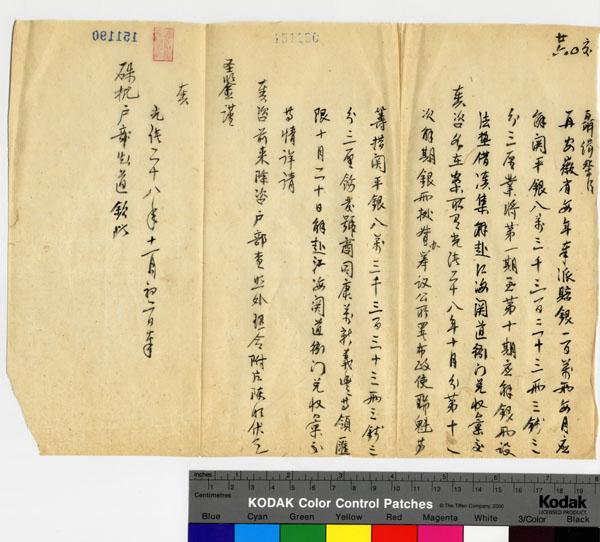 聶緝槼片
再安徽省每年奉派賠銀一百萬兩每月應
解關平銀八萬三千三百三十三兩三錢三
分三厘業將第一期至第十期應解銀兩設
法墊借湊集解赴江海關道衙門兌收彙交
奏咨各在案所有光緒二十八年十月分第十一
次解期銀兩據籌議公所署布政使聯魁等
籌措關平銀八萬三千三百三十三兩三錢三
分三厘飭發號商同康萬新義豐等領匯
限十月二十日解赴江海關道衙門兌收彙交
等情詳請
奏咨前來除咨戶部查照外理合附片陳明伏乞
聖鑒謹
奏
光緒二十八年十一月初一日奉
硃批戶部知道欽此
151190
151190
Inches
Centimetres
KODAK Color Control Patches
© The Tiffen Company, 2000
Kodak
LICENSED PRODUCT
Blue Cyan Green Yellow Red Magenta White 3/Color Black